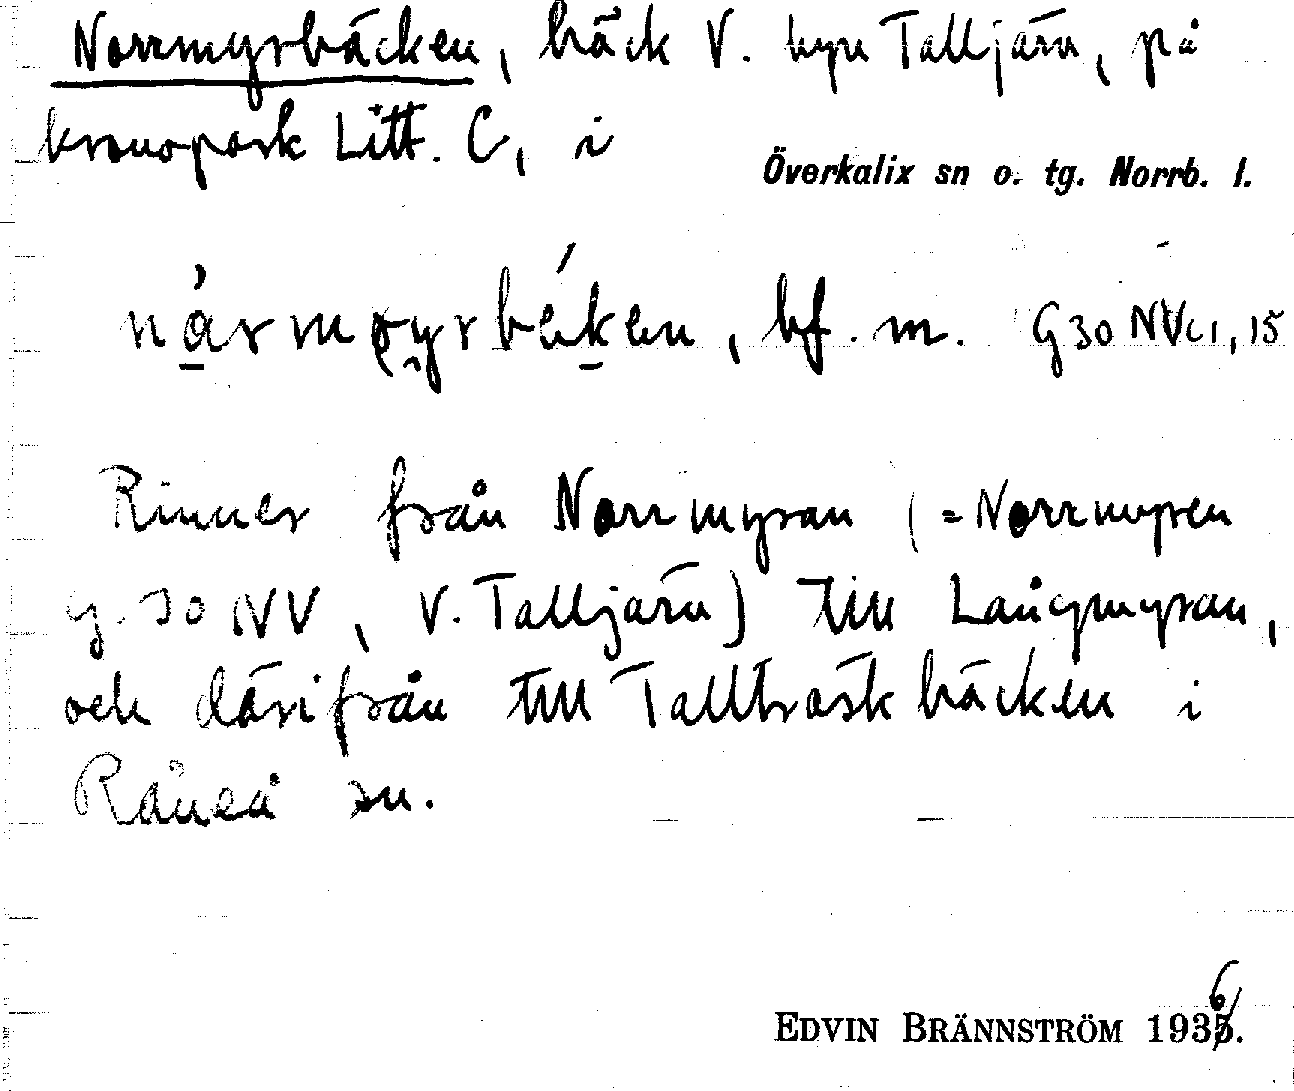 Norrmyrbäcken, bäck V. hyn Talljärn, på
kronopark Litt. C, i
Överkalix sn o. tg. Norrb. l.
bf. m. G 30 NV c 1, 15
Rinner från Norrmyran (= Norrmyren
g. 30 NV, V. Talljärn) till Långmyran,
och därifrån till Talltraskbäcken i
Råneå sn.
EDVIN BRÄNNSTRÖM 1936.